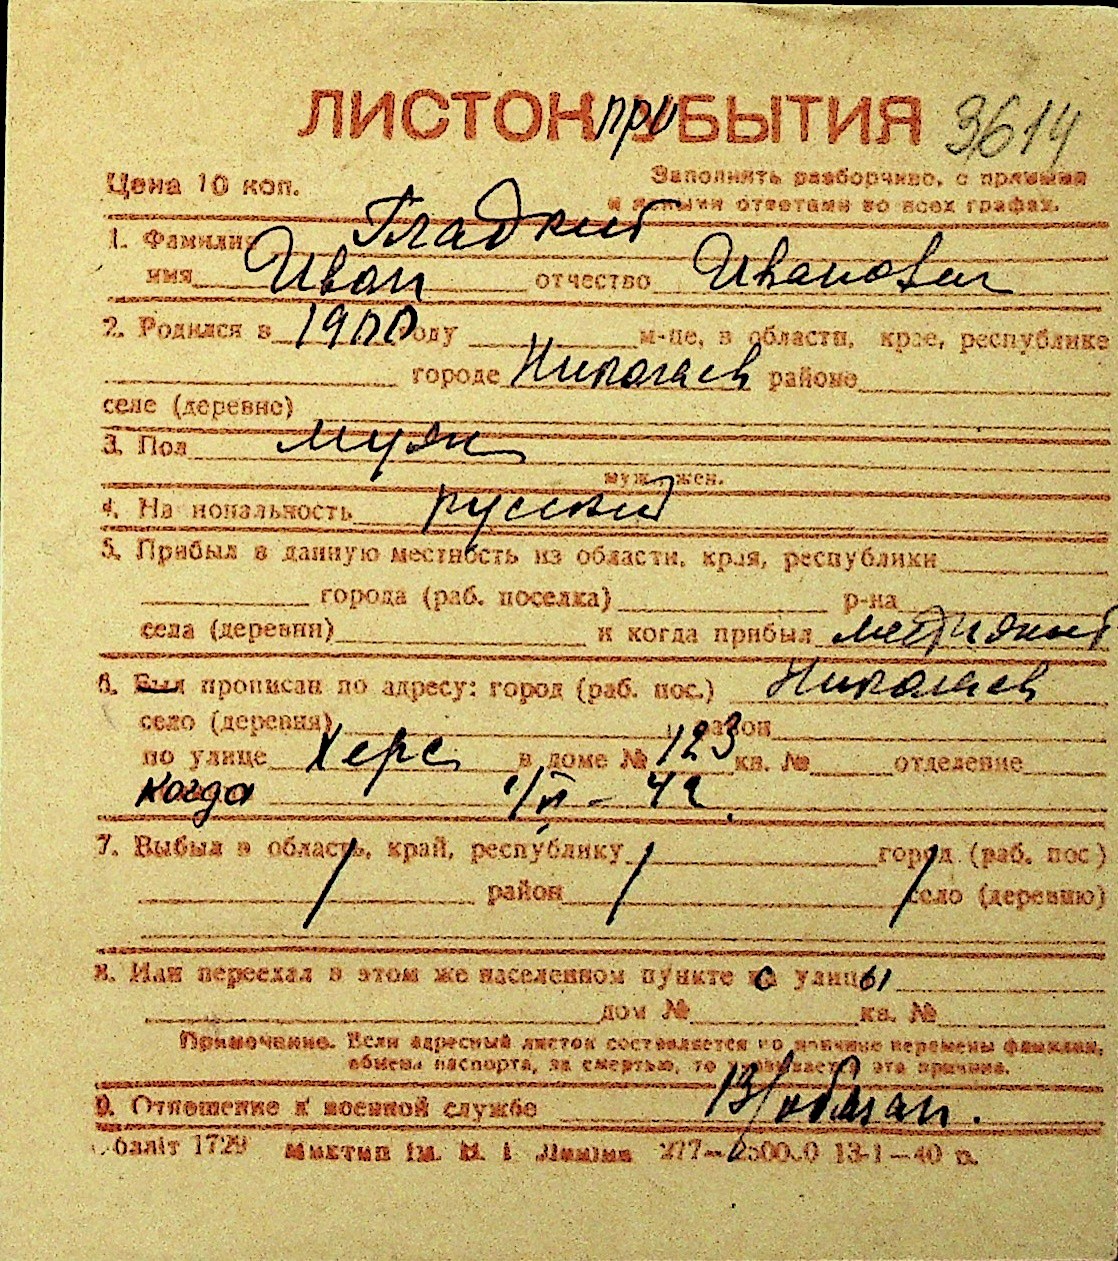 ЛИСТОК при УБЫТИЯ 3614
Цена 10 коп. Заполнять разборчиво, с прямыми
и ясными ответами во всех графах.
1. Фамилия Гладкий
имя Иван отчество Иванович
2. Родился в 1900 году м-це, в области, крае, республике
городе Николаев районе
селе (деревне)
3. Пол муж
муж., жен.
4. Национальность русский
5. Прибыл в данную местность из области, края, республики
города (раб. поселка) р-на
села (деревни) и когда прибыл местный
6. Был прописан по адресу: город (раб. пос.) Николаев
село (деревня) район
по улице Херс в доме № 123 кв. № отделение
когда 1/II - 42
7. Выбыл в область, край, республику город (раб. пос)
район село (деревню)
8. Или переехал в этом же населенном пункте с улицы
дом № кв. №
Примечание. Если адресный листок составляется по причине перемены фамилии,
обмена паспорта, за смертью, то указывается эта причина.
9. Отношение к военной службе В/обязан.
Обліт 1729 Миктип ім. Леніна 277— 13-1—40 р.